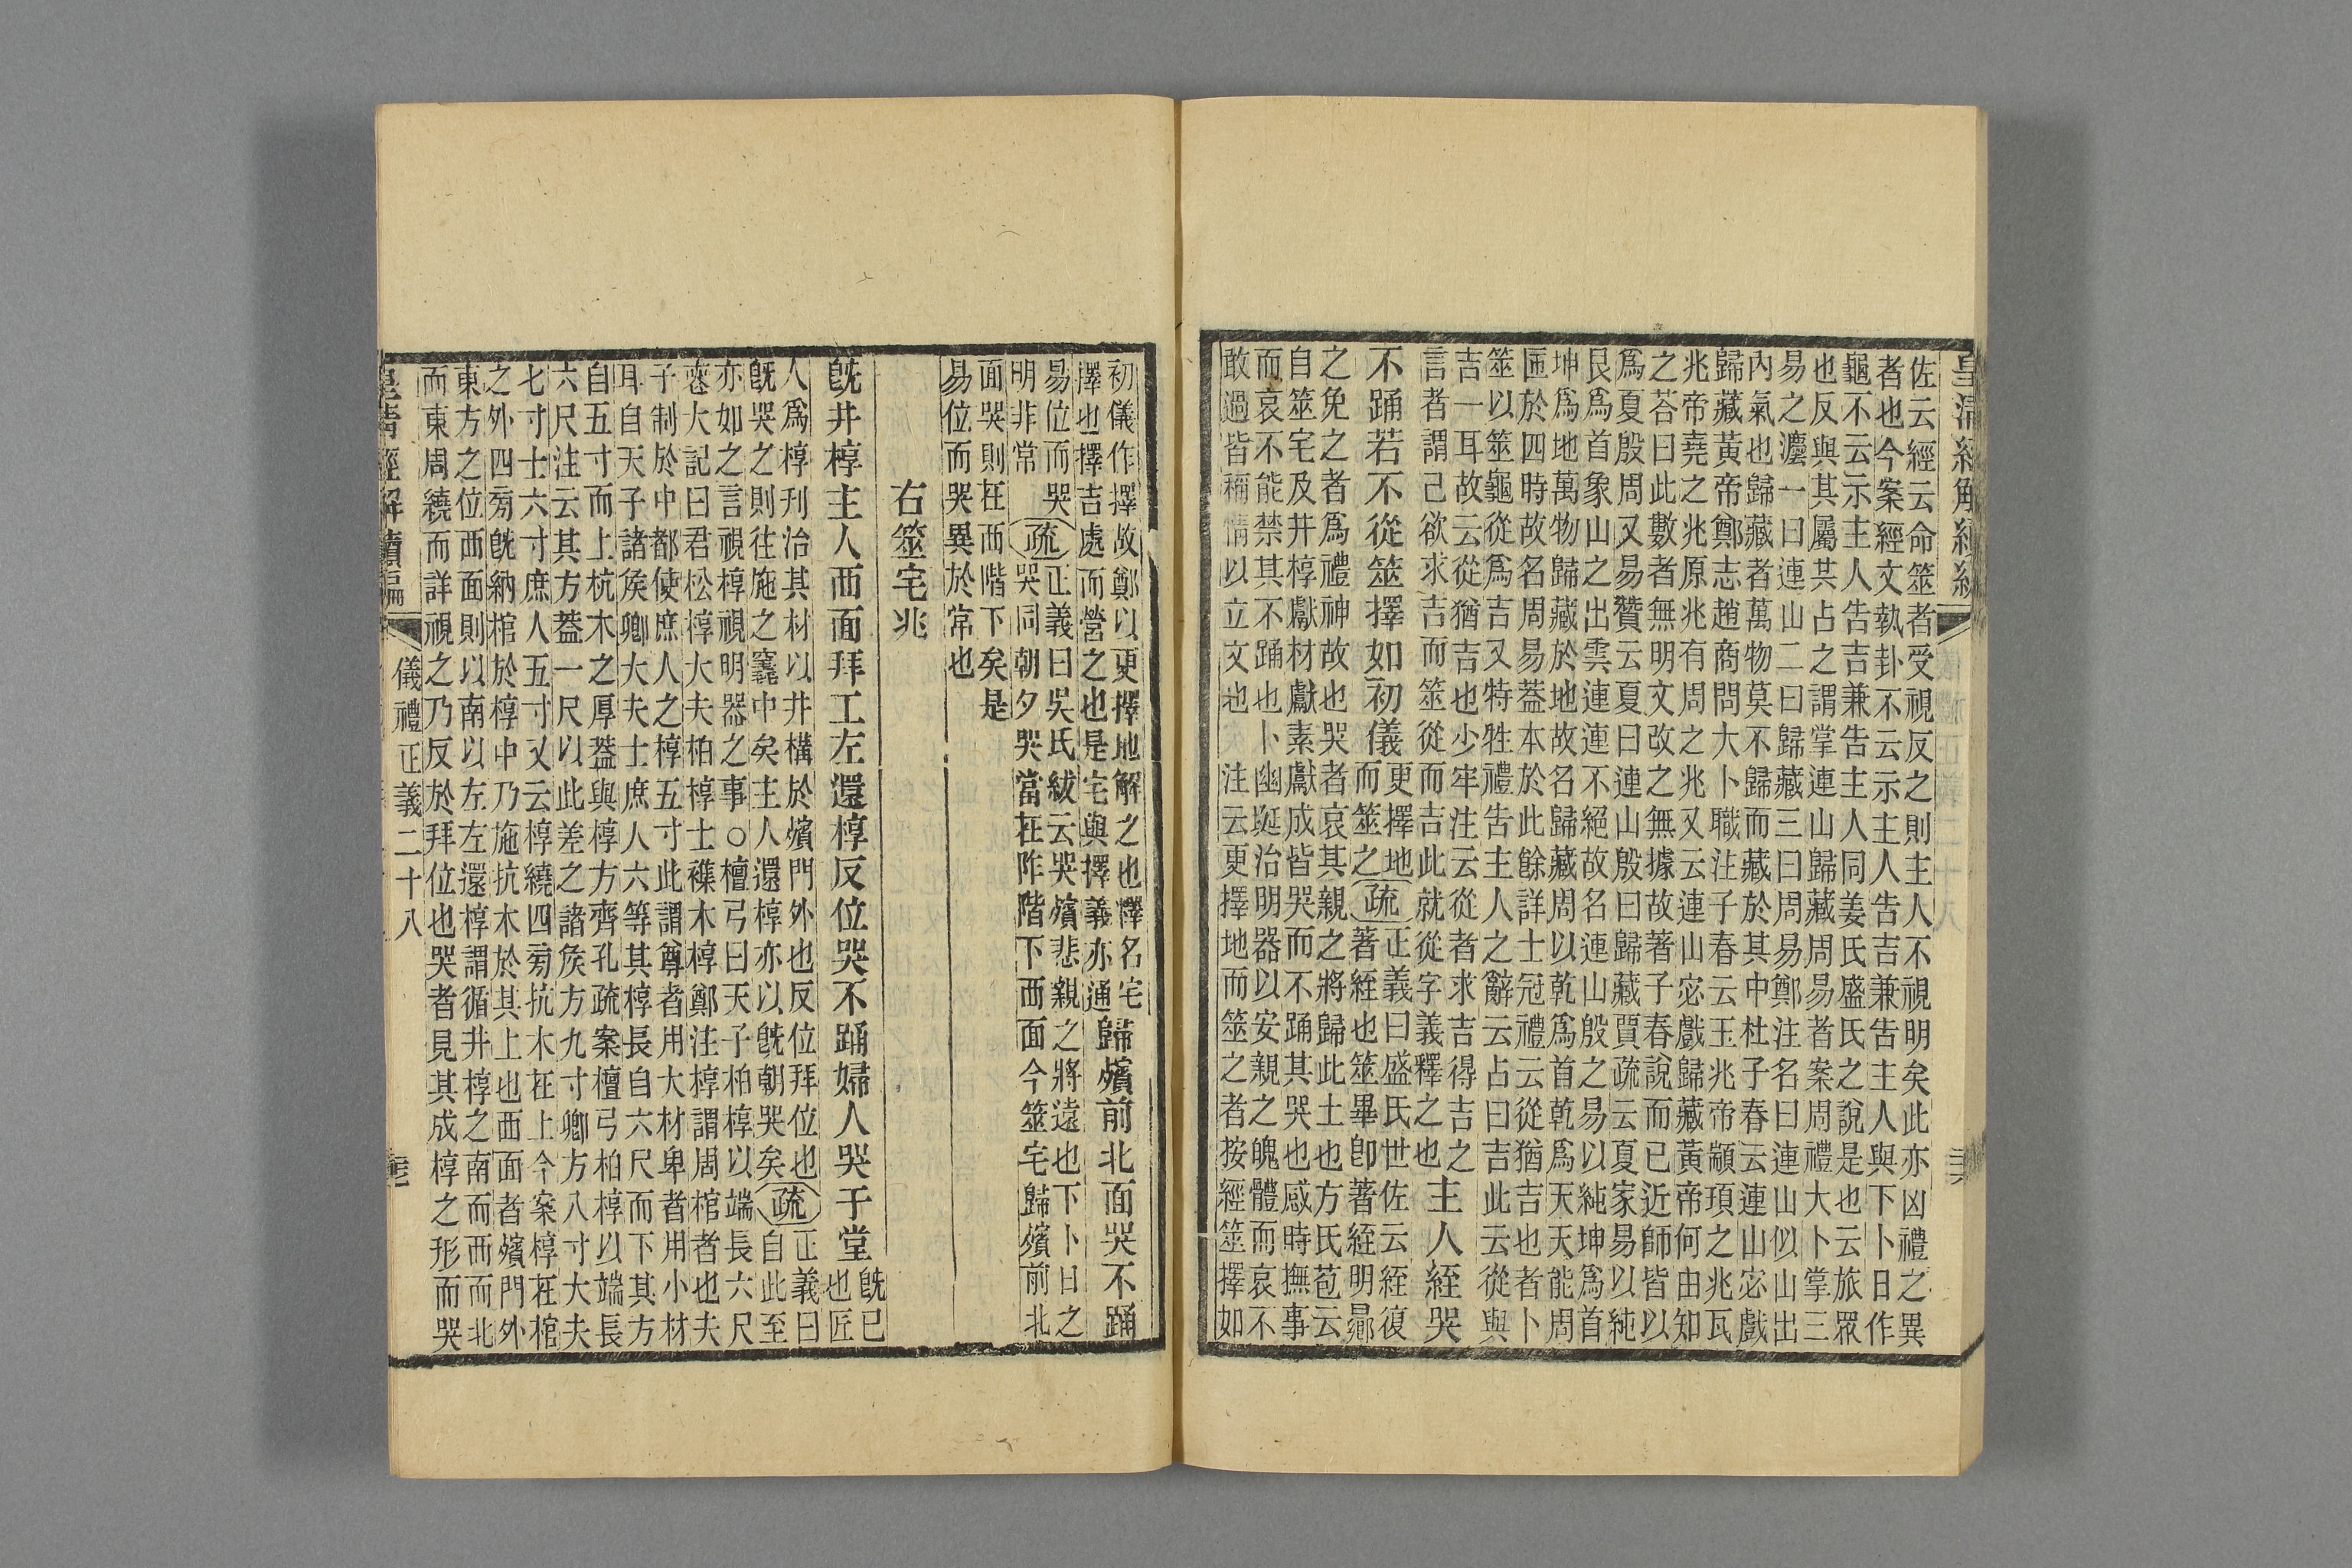 皇清經解續編
佐云經云命筮者受視反之則主人不視明矣此亦凶禮之異
者也今案經文執卦不云示主人告吉兼告主人與下卜日作
龜不云示主人告吉兼告主人同姜氏盛氏之說是也云旅眾
也反與其屬共占之謂掌連山歸藏周易者案周禮大卜掌三
易之灋一曰連山二曰歸藏三曰周易鄭注名曰連山似山出
內氣也歸藏者萬物莫不歸而藏於其中杜子春云連山宓戲
歸藏黃帝鄭志趙商問大卜職注子春云玉兆帝顓頊之兆瓦
兆帝堯之兆原兆有周之兆又云連山宓戲歸藏黃帝何由知
之荅曰此數者無明文改之無據故著子春說而已近師皆以
爲夏殷周又易贊云夏曰連山殷曰歸藏賈疏云夏家易以純
艮爲首象山之出雲連連不絕故名連山殷之易以純坤爲首
坤爲地萬物歸藏於地故名歸藏周以乾爲首乾爲天天能周
匝於四時故名周易葢本於此餘詳士冠禮云從猶吉也者卜
筮以筮龜從爲吉又特牲禮告主人之辭云占曰吉此云從與
吉一耳故云從猶吉也少牢注云從者求吉得吉之
言者謂己欲求吉而筮從而吉此就從字義釋之也主人絰哭
不踊若不從筮擇如初儀更擇地
而筮之疏正義曰盛氏世佐云絰復
著絰也筮畢卽著絰明曏
之免之者爲禮神故也哭者哀其親之將歸此土也方氏苞云
自筮宅及井椁獻材獻素獻成皆哭而不踊其哭也感時撫事
而哀不能禁其不踊也卜幽埏治明器以安親之魄體而哀不
敢過皆稱情以立文也注云更擇地而筮之者按經筮擇如
初儀作擇故鄭以更擇地解之也擇名宅
擇也擇吉處而營之也是宅與擇義亦通歸殯前北面哭不踊
易位而哭
明非常疏正義曰吳氏紱云哭殯悲親之將遠也下卜日之
哭同朝夕哭當在阼階下西面今筮宅歸殯前北
面哭則在西階下矣是
易位而哭異於常也
右筮宅兆
旣井椁主人西面拜工左還椁反位哭不踊婦人哭于堂旣已
也匠
人爲椁刊治其材以井構於殯門外也反位拜位也
旣哭之則往施之竁中矣主人還椁亦以旣朝哭矣疏正義曰
自此至
亦如之言視椁視明器之事○檀弓曰天子柏椁以端長六尺
喪大記曰君松椁大夫柏椁士襍木椁鄭注椁謂周棺者也夫
子制於中都使庶人之椁五寸此謂尊者用大材卑者用小材
耳自天子諸矦卿大夫士庶人六等其椁長自六尺而下其方
自五寸而上杭木之厚葢與椁方齊孔疏案檀弓柏椁以端長
六尺注云其方葢一尺以此差之諸矦方九寸卿方八寸大夫
七寸士六寸庶人五寸又云椁繞四旁抗木在上今案椁在棺
之外四旁旣納棺於椁中乃施抗木於其上也西面者殯門外
東方之位西面則以南以左左還椁謂循井椁之南而西而北
而東周繞而詳視之乃反於拜位也哭者見其成椁之形而哭
皇清經解續編
儀禮正義二十八